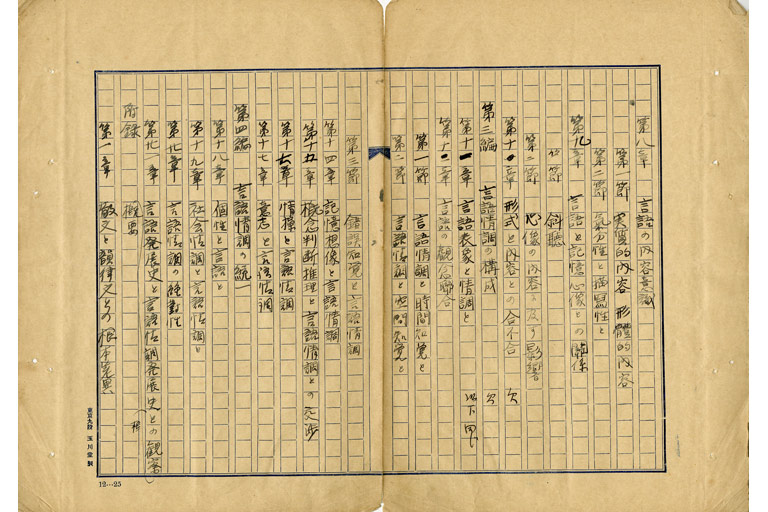 第八章 言語の内容意識
第一節 実質的内容 形體的内容
第二節 気分性と描写性と
第九章 言語と記憶心像との関係
第一節 斜聴
第二節 心像の内容に及ぼす影響
第十章 形式と内容との合不合 欠
第三編 言語情調の構成 欠
第十一章 言語表象と情調と 以下同じ
第十二章 言語の観念聯合
第一節 言語情調と時間知覚と
第二節 言語情調と空間知覚と
第三節 錯誤知覚と言語情調
第十四章 記憶想像と言語情調
第十五章 概念判断推理と言語情調との交渉
第十六章 情操と言語情調
第十七章 意志と言語情調
第四編 言語情調の統一
第十八章 個性と言語と
第十九章 社会情調と言語情調と
第廿章 言語情調の絶対性
第廿一章 言語発展史と言語情調発展史との観察
附録 概要
第一章 散文と韻律文との根本差異
東京九段 玉川堂製
12…25